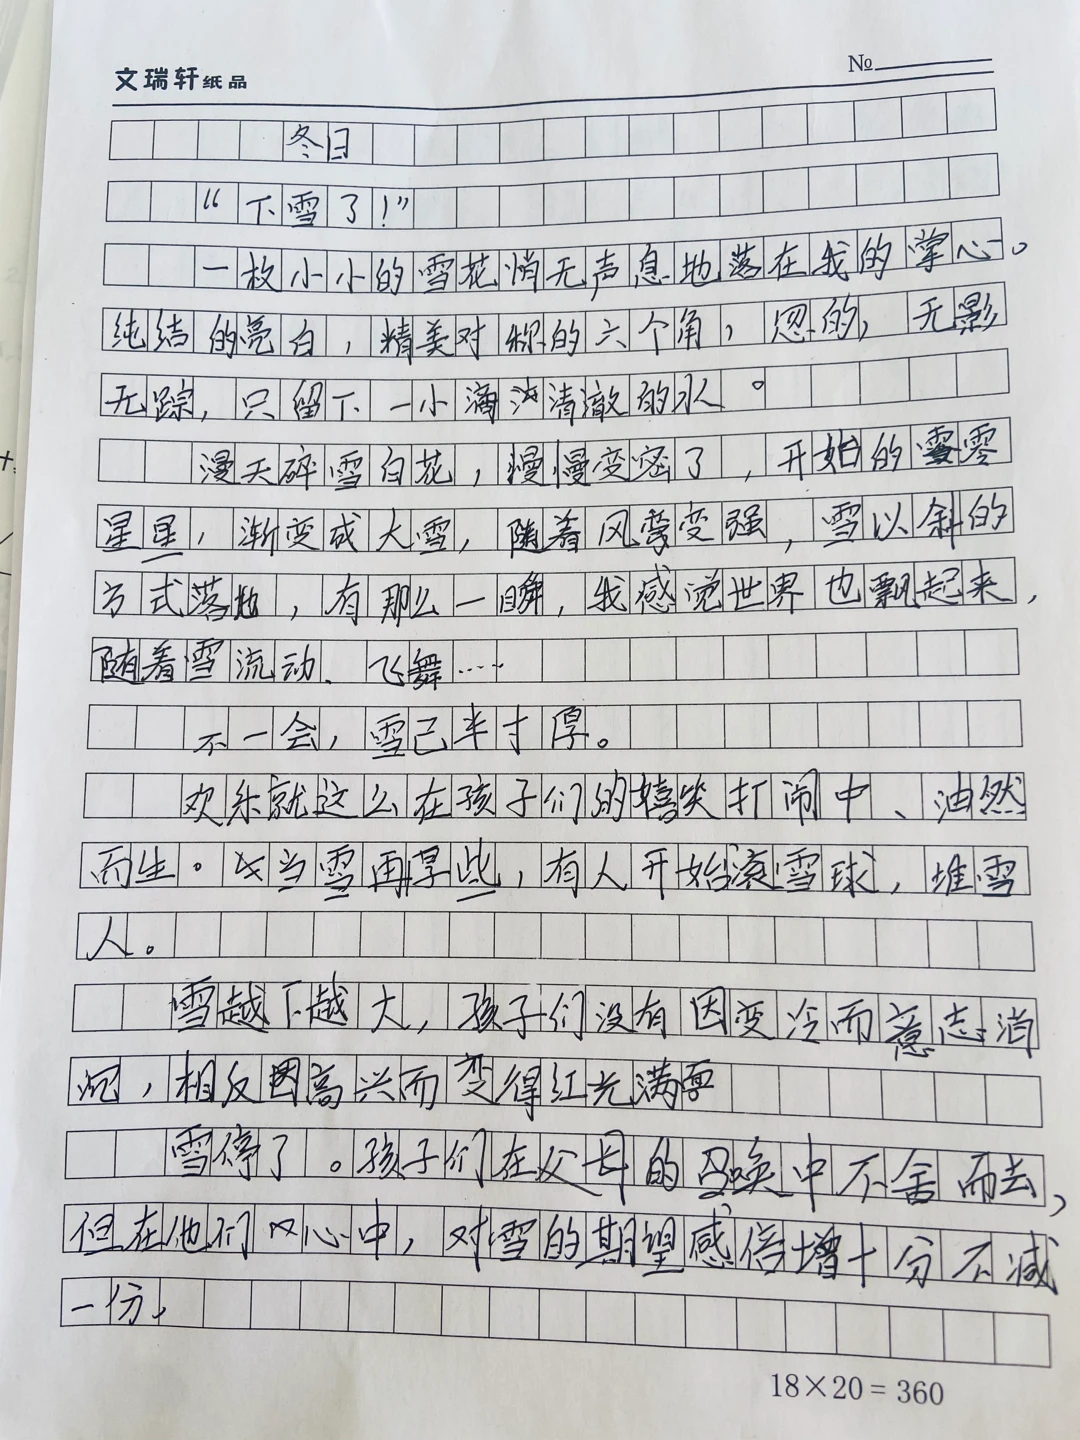 文瑞轩纸品
№
冬日
“下雪了！”
一枚小小的雪花悄无声息地落在我的掌心。
纯结的亮白，精美对称的六个角，忽的，无影
无踪，只留下一小滴清澈的水。
漫天碎雪白花，慢慢变密了，开始的零
星星，渐变成大雪，随着风变强，雪以斜的
方式落地，有那么一瞬，我感觉世界也飘起来，
随着雪流动、飞舞……
不一会，雪已半寸厚。
欢乐就这么在孩子们的嬉笑打闹中、油然
而生。当雪再厚些，有人开始滚雪球，堆雪
人。
雪越下越大，孩子们没有因变冷而意志消
沉，相反因高兴而变得红光满面
雪停了。孩子们在父母的召唤中不舍而去，
但在他们内心中，对雪的期望感倍增十分不减
一分，
18×20=360